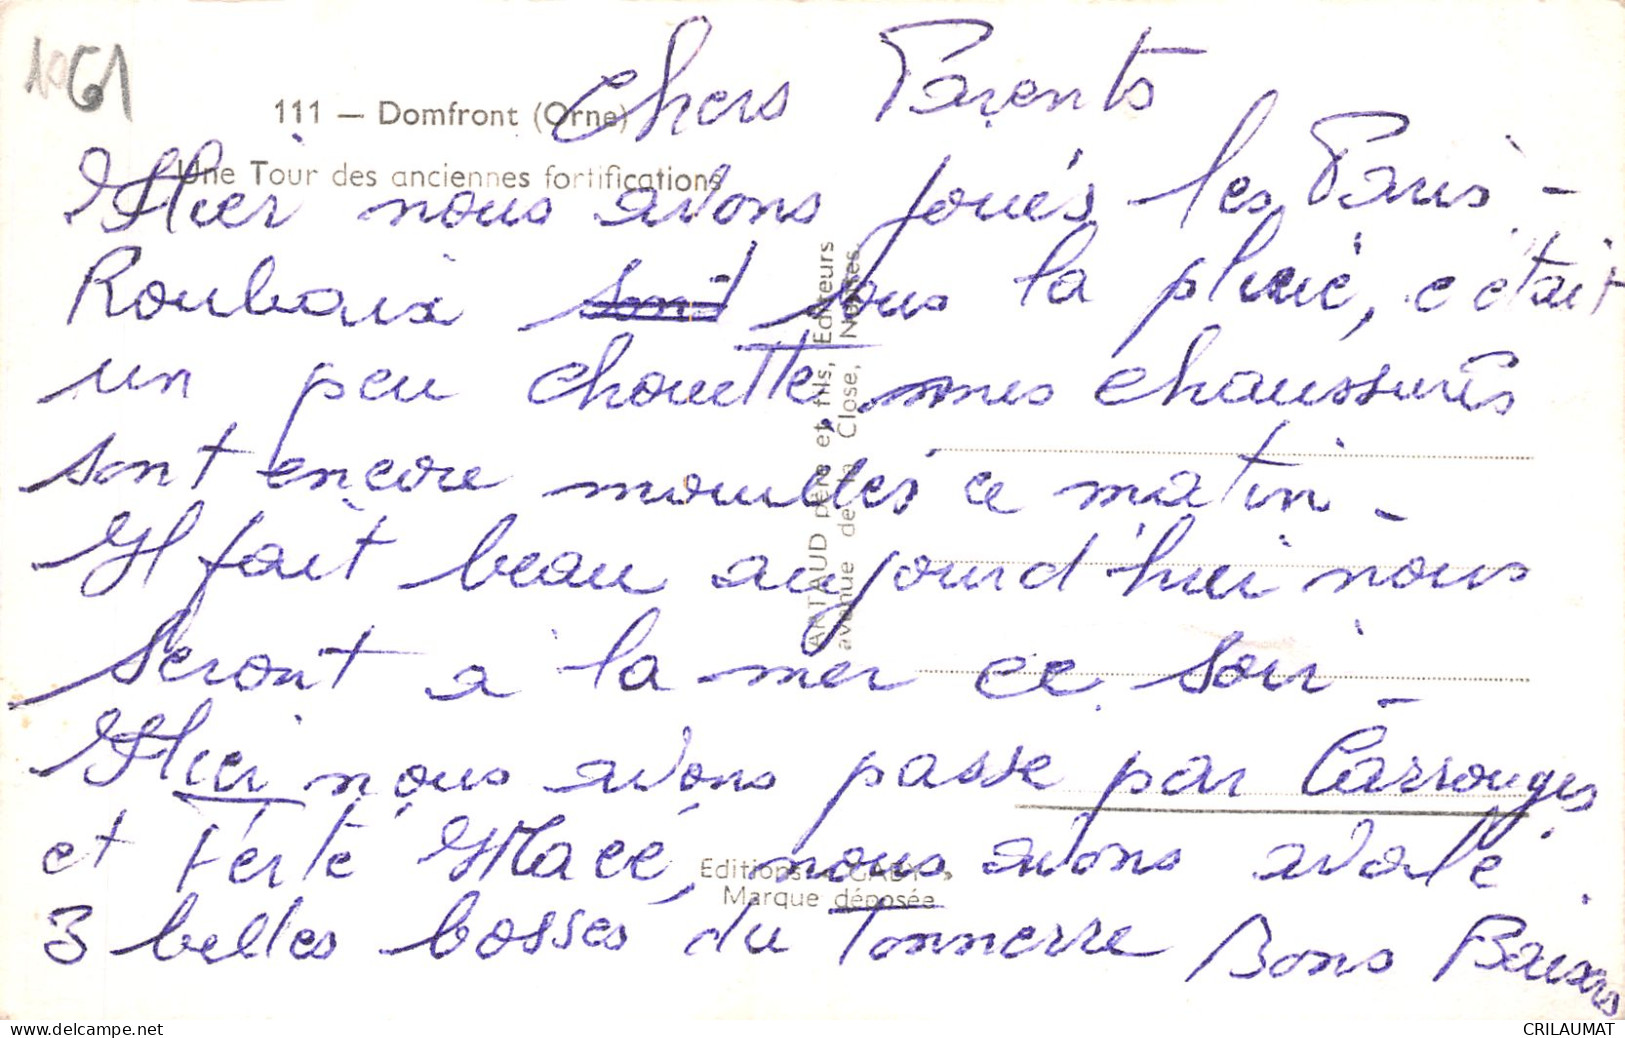 61
111 — Domfront (Orne)
Une Tour des anciennes fortifications
Chers Parents
Hier nous avons joués les Paris-
Roubaix sous la pluie, c était
un peu chouette, mes chaussures
sont encore mouillés ce matin -
Il fait beau aujourd'hui nous
seront a la mer ce soir -
Hier nous avons passe par Carrouges
et Ferté Macé, nous avons avalé
3 belles bosses du Tonnerre Bons Baisers
ARTAUD père et fils, Editeurs
avenue de la Close, Nantes
Editions "GABY"
Marque déposée
delcampe.net
CRILAUMAT